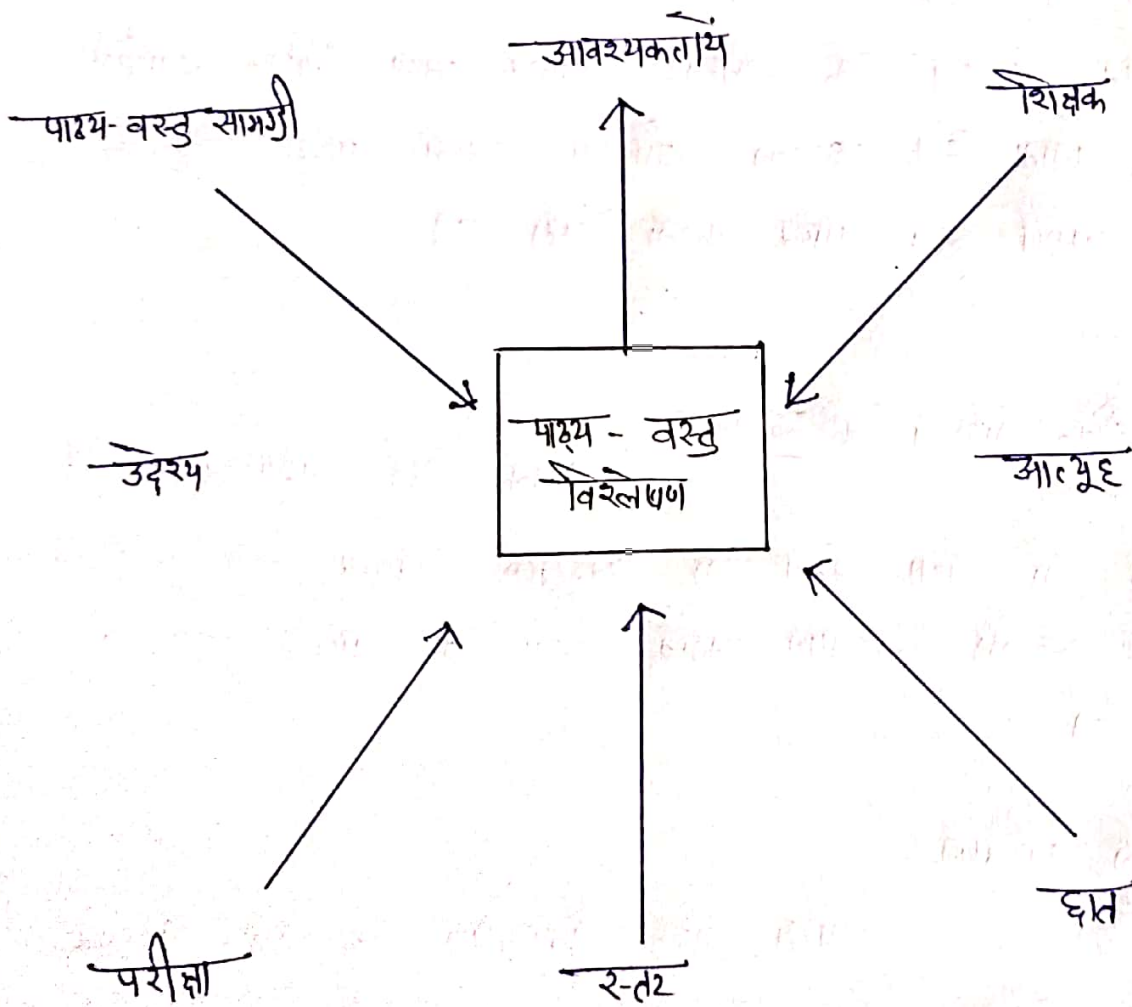 आवश्यकतायें
पाठ्य-वस्तु सामग्री
शिक्षक
पाठ्य - वस्तु
विश्लेषण
उद्देश्य
परीक्षा
स्तर